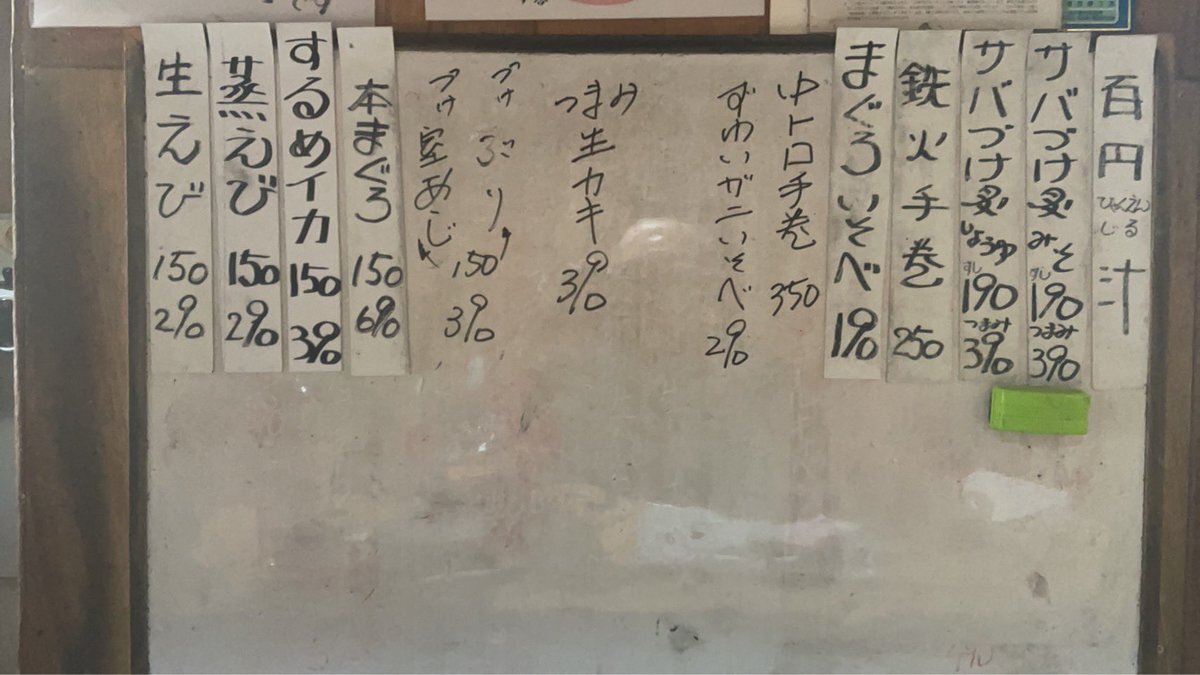 百円汁 ひゃくえんじる
サバづけ炙 みそ すし 190 つまみ 390
サバづけ炙 しょうゆ すし 190 つまみ 390
鉄火手巻 250
まぐろいそべ 190
中トロ手巻 350
ずわいガニいそべ 290
つまみ 生カキ 390
づけ ぶり 150 390
づけ 室めじ
本まぐろ 150 690
するめイカ 150 390
蒸えび 150 290
生えび 150 290